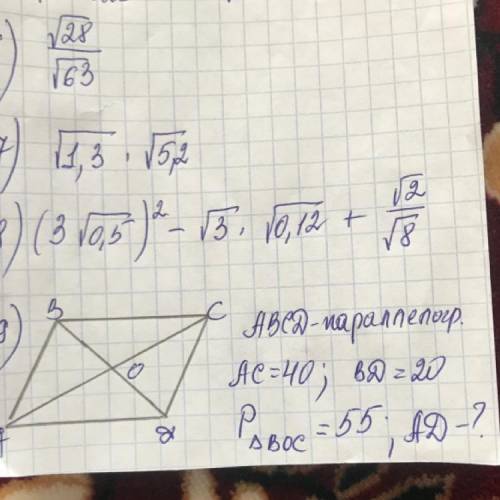 √28 / √63
7) √1,3 · √5,2
8) (3√0,5)² − √3 · √0,12 + √2 / √8
9) B C
O
A D
ABCD-параллелогр.
AC=40; BD=20
P△BOC=55; AD-?